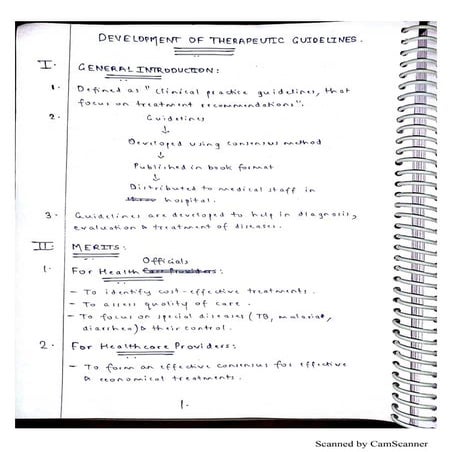 DEVELOPMENT OF THERAPEUTIC GUIDELINES.
I. GENERAL INTRODUCTION:
1. Defined as "Clinical practice guidelines, that
focus on treatment recommendations".
2. Guidelines
↓
Developed using consensus method
↓
Published in book format
↓
Distributed to medical staff in
hospital.
3. Guidelines are developed to help in diagnosis,
evaluation & treatment of diseases.
II MERITS:
Officials
1. For Health Care Providers:
- To identify cost-effective treatments.
- To assess quality of care.
- To focus on special diseases (TB, malaria,
diarrhea) & their control.
2. For Healthcare Providers:
- To form an effective consensus for effective
& economical treatments.
1.
Scanned by CamScanner